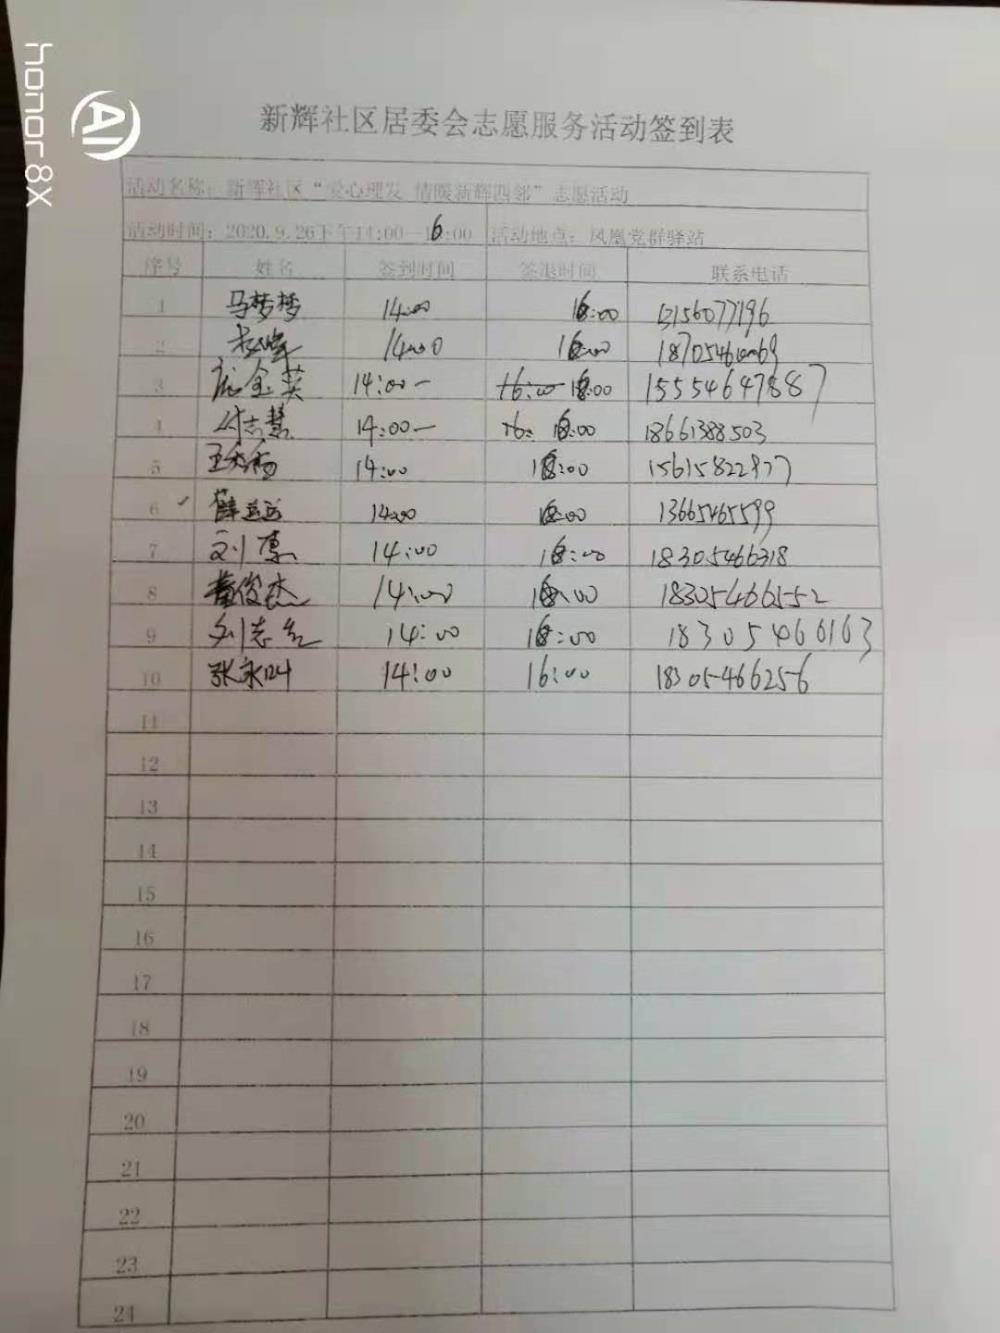 honor 8X
AI
新辉社区居委会志愿服务活动签到表
活动名称：新辉社区“爱心理发 情暖新辉四邻”志愿活动
活动时间：2020.9.26下午14:00—16:00 活动地点：凤凰党群驿站
序号 姓名 签到时间 签退时间 联系电话
1 马梦梦 14:00 16:00 13156077196
2 14:00 16:00
3 庞金英 14:00— 16:00 16:00 15554647887
4 付志慧 14:00— 16: 16:00 18661388503
5 14:00 16:00 15615822977
6 薛益益 14:00 16:00 13665465599
7 刘惠 14:00 16:00 18305466318
8 董俊杰 14:00 16:00 18305466552
9 刘志 14:00 16:00 18305466163
10 张永 14:00 16:00 18305466256
11
12
13
14
15
16
17
18
19
20
21
22
23
24